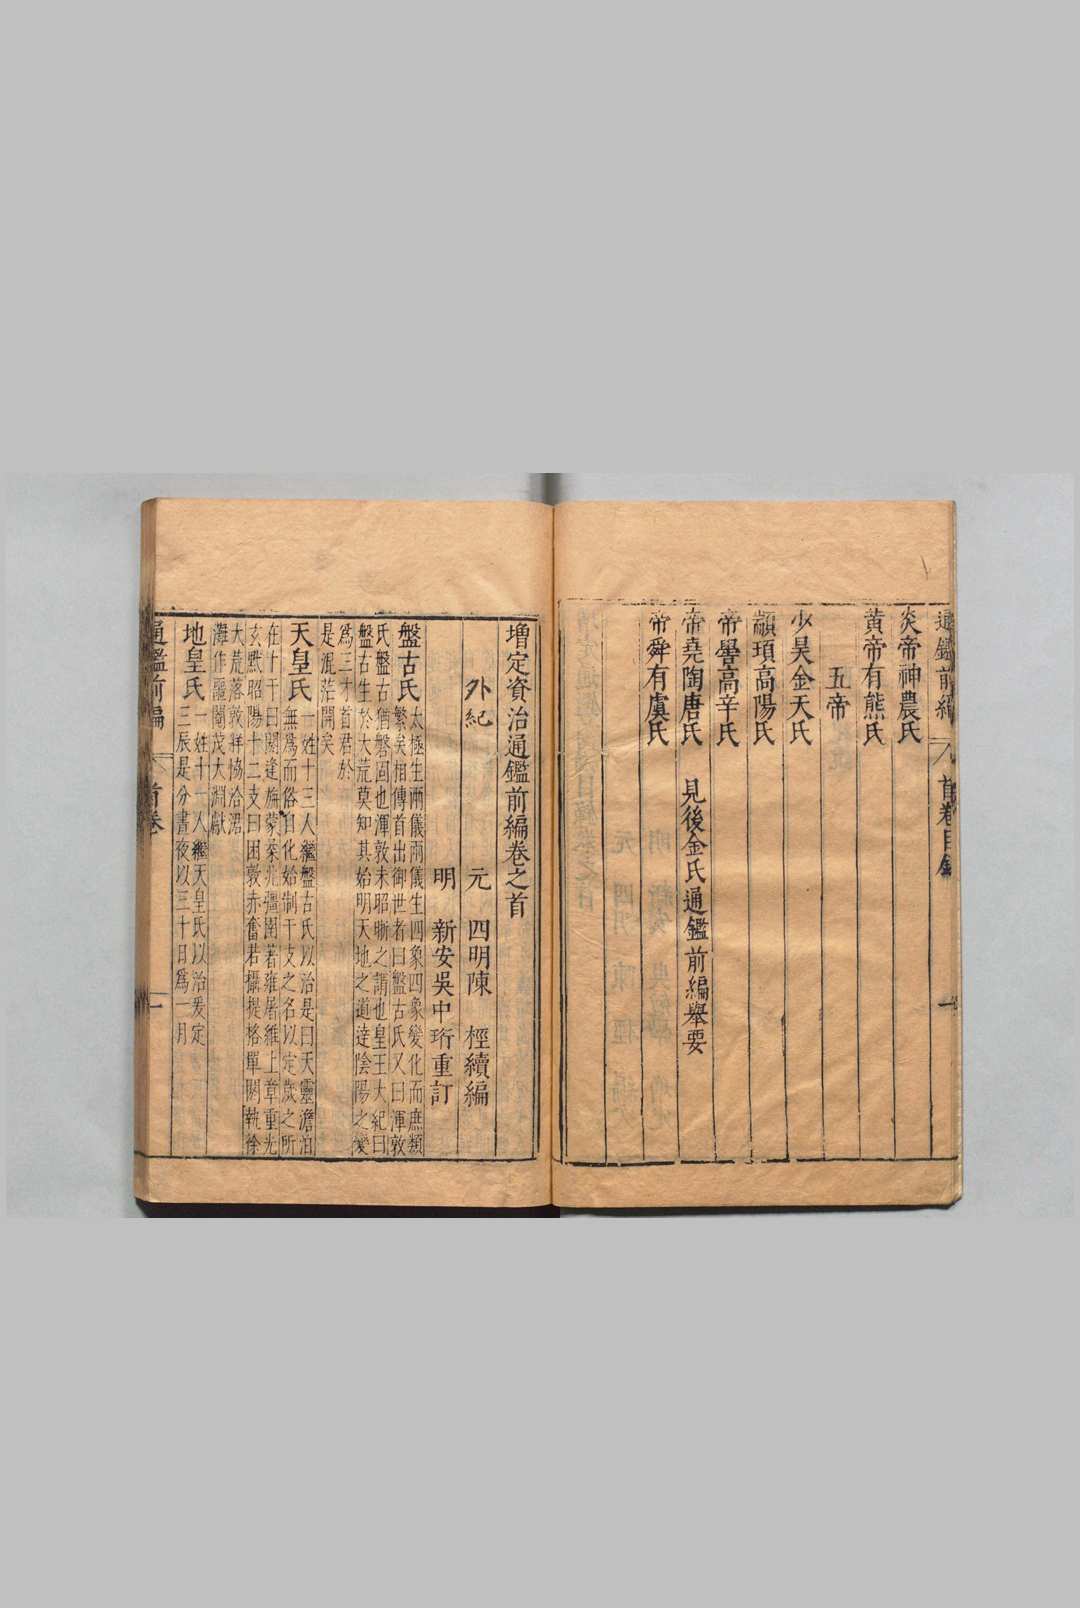 通鑑前編 首卷目錄 一
炎帝神農氏
黃帝有熊氏
五帝
少昊金天氏
顓頊高陽氏
帝嚳高辛氏
帝堯陶唐氏 見後金氏通鑑前編舉要
帝舜有虞氏
增定資治通鑑前編卷之首
外紀 元 四明陳 桱續編
明 新安吳中珩重訂
盤古氏 太極生兩儀兩儀生四象四象變化而庶類
繁矣相傳首出御世者曰盤古氏又曰渾敦
氏盤古猶磐固也渾敦未昭晰之謂也皇王大紀曰
盤古生於大荒莫知其始明天地之道達陰陽之變
爲三才首君於
是混茫開矣
天皇氏 一姓十三人繼盤古氏以治是曰天靈澹泊
無爲而俗自化始制干支之名以定歲之所
在十干曰閼逢旃蒙柔兆彊圉著雍屠維上章重光
玄黓昭陽十二支曰困敦赤奮若攝提格單閼執徐
大荒落敦牂協洽涒
灘作噩閹茂大淵獻
地皇氏 一姓十一人繼天皇氏以治爰定
三辰是分晝夜以三十日爲一月
通鑑前編 首卷 一